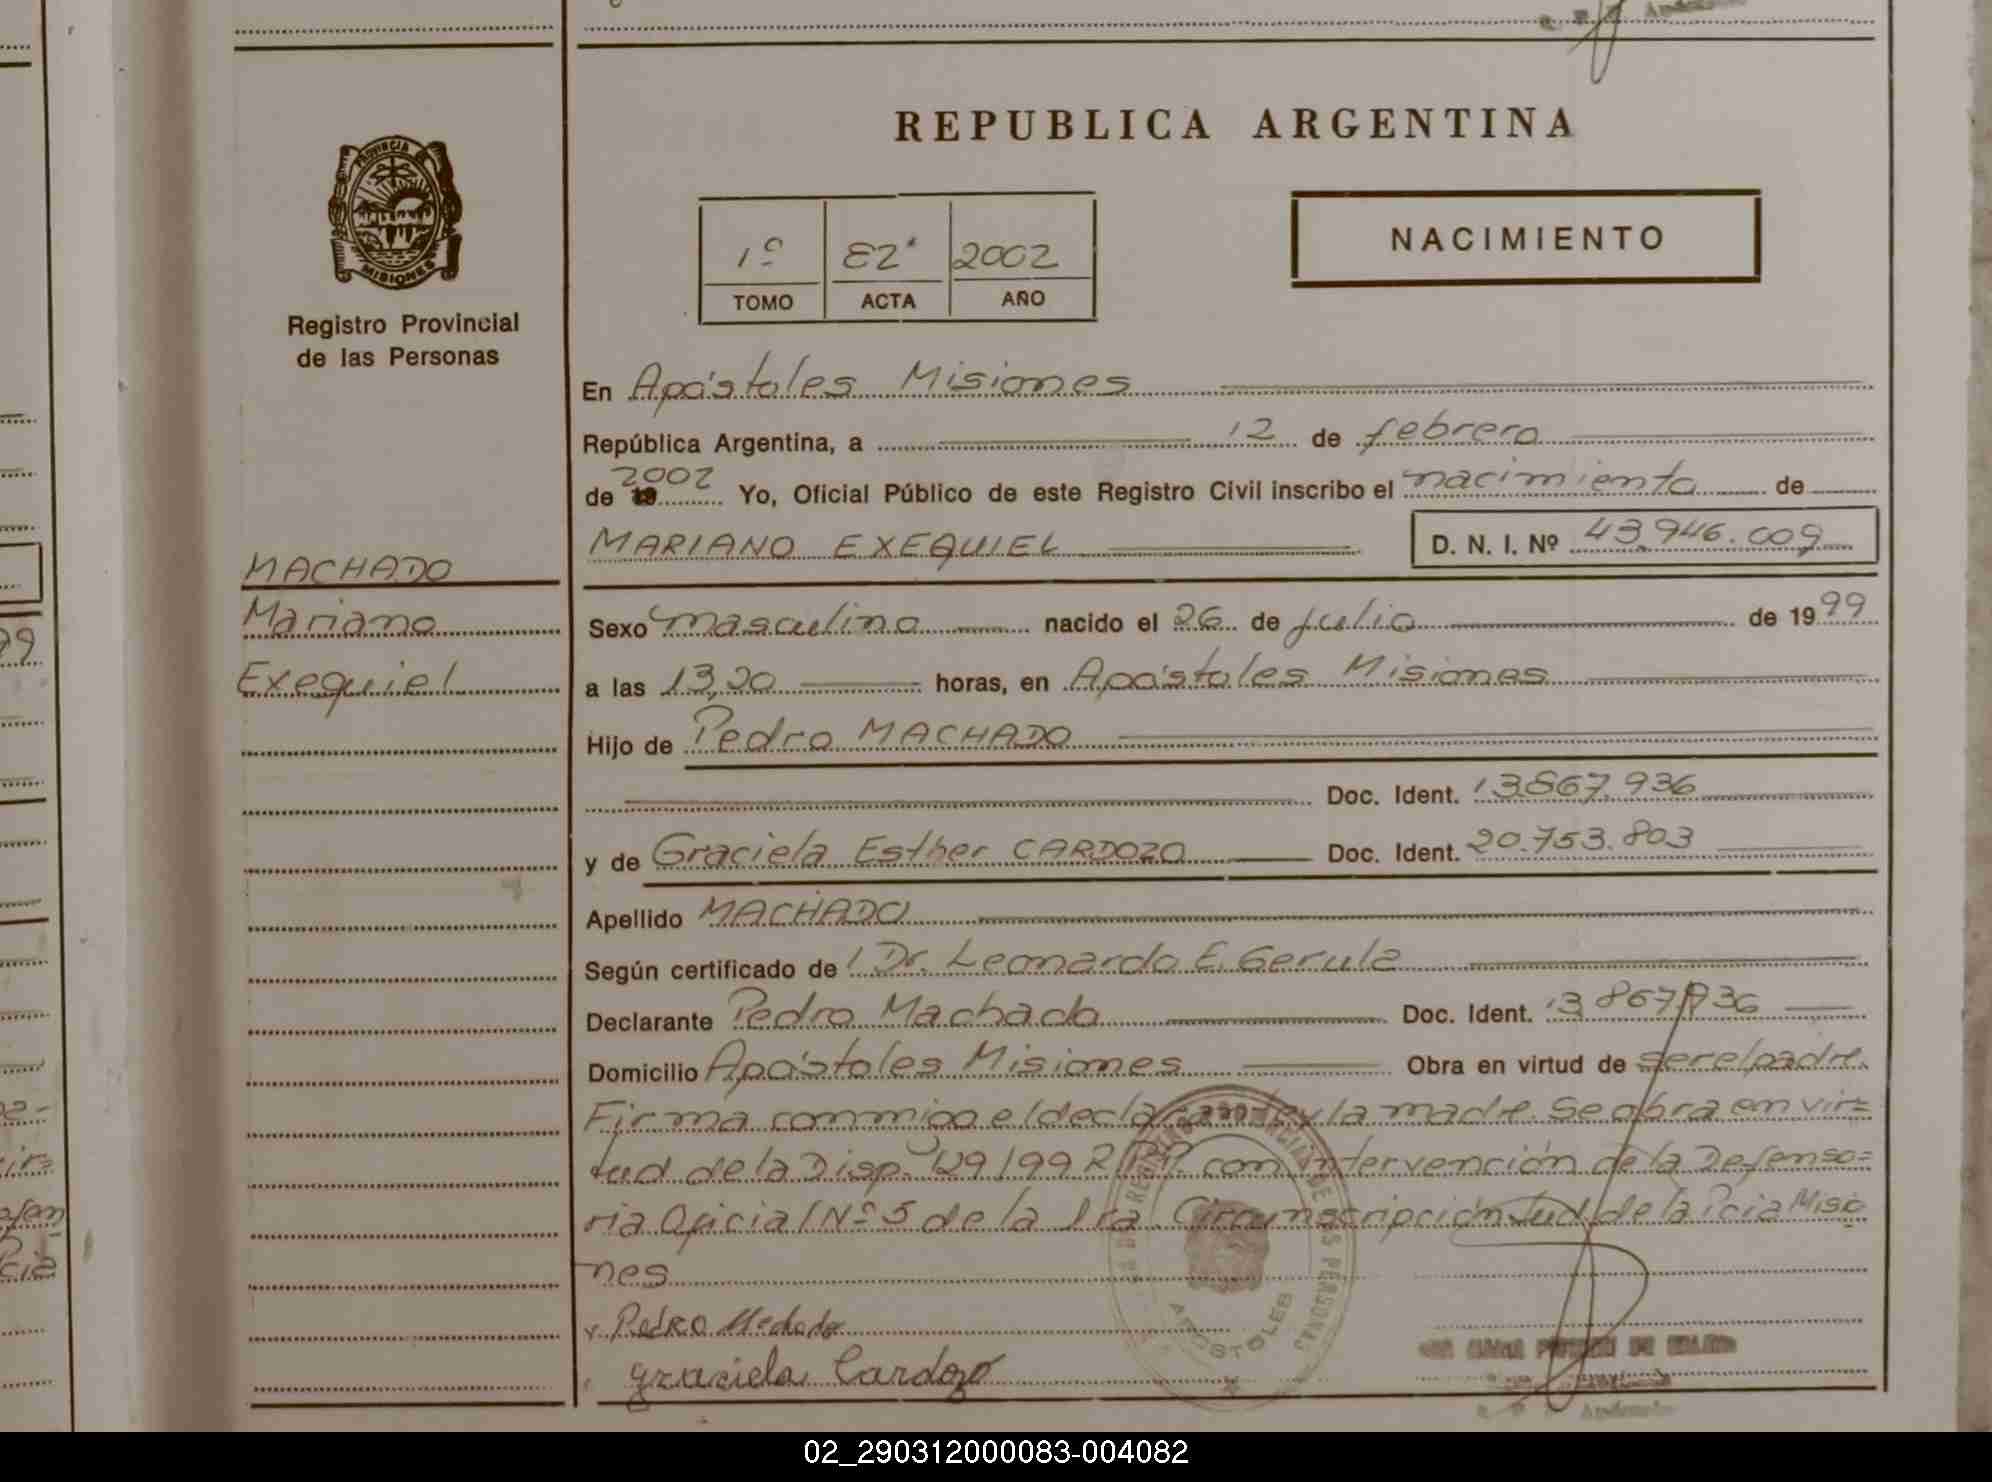 REPUBLICA ARGENTINA
PROVINCIA DE
MISIONES
Registro Provincial
de las Personas
1º 82 2002
TOMO ACTA AÑO
NACIMIENTO
En Apóstoles Misiones
República Argentina, a 12 de febrero
de 2002 Yo, Oficial Público de este Registro Civil inscribo el nacimiento de
MARIANO EXEQUIEL D. N. I. Nº 43.946.009
MACHADO
Mariano
Exequiel
Sexo masculino nacido el 26 de julio de 1999
a las 13,20 horas, en Apóstoles Misiones
Hijo de Pedro MACHADO
Doc. Ident. 13.867.936
y de Graciela Esther CARDOZO Doc. Ident. 20.753.803
Apellido MACHADO
Según certificado de Dr. Leonardo E. Gerula
Declarante Pedro Machado Doc. Ident. 13.867.936
Domicilio Apóstoles Misiones Obra en virtud de ser el padre.
Firma conmigo el declarante y la madre. Se obra en vir=
tud de la Disp. 129/99 R.P.P. con intervención de la Defenso=
ria Oficial Nº 5 de la 1ra Circunscripción Jud. de la Pcia Misio
nes
Pedro Machado
Graciela Cardozo
APOSTOLES
02_290312000083-004082